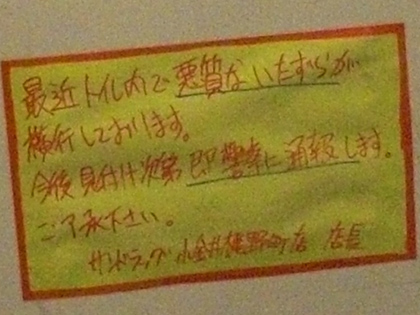 最近トイレ内で悪質ないたずらが
横行しております。
今後見付け次第即警察に通報します。
ご了承下さい。
サンドラッグ小金井緑町店 店長